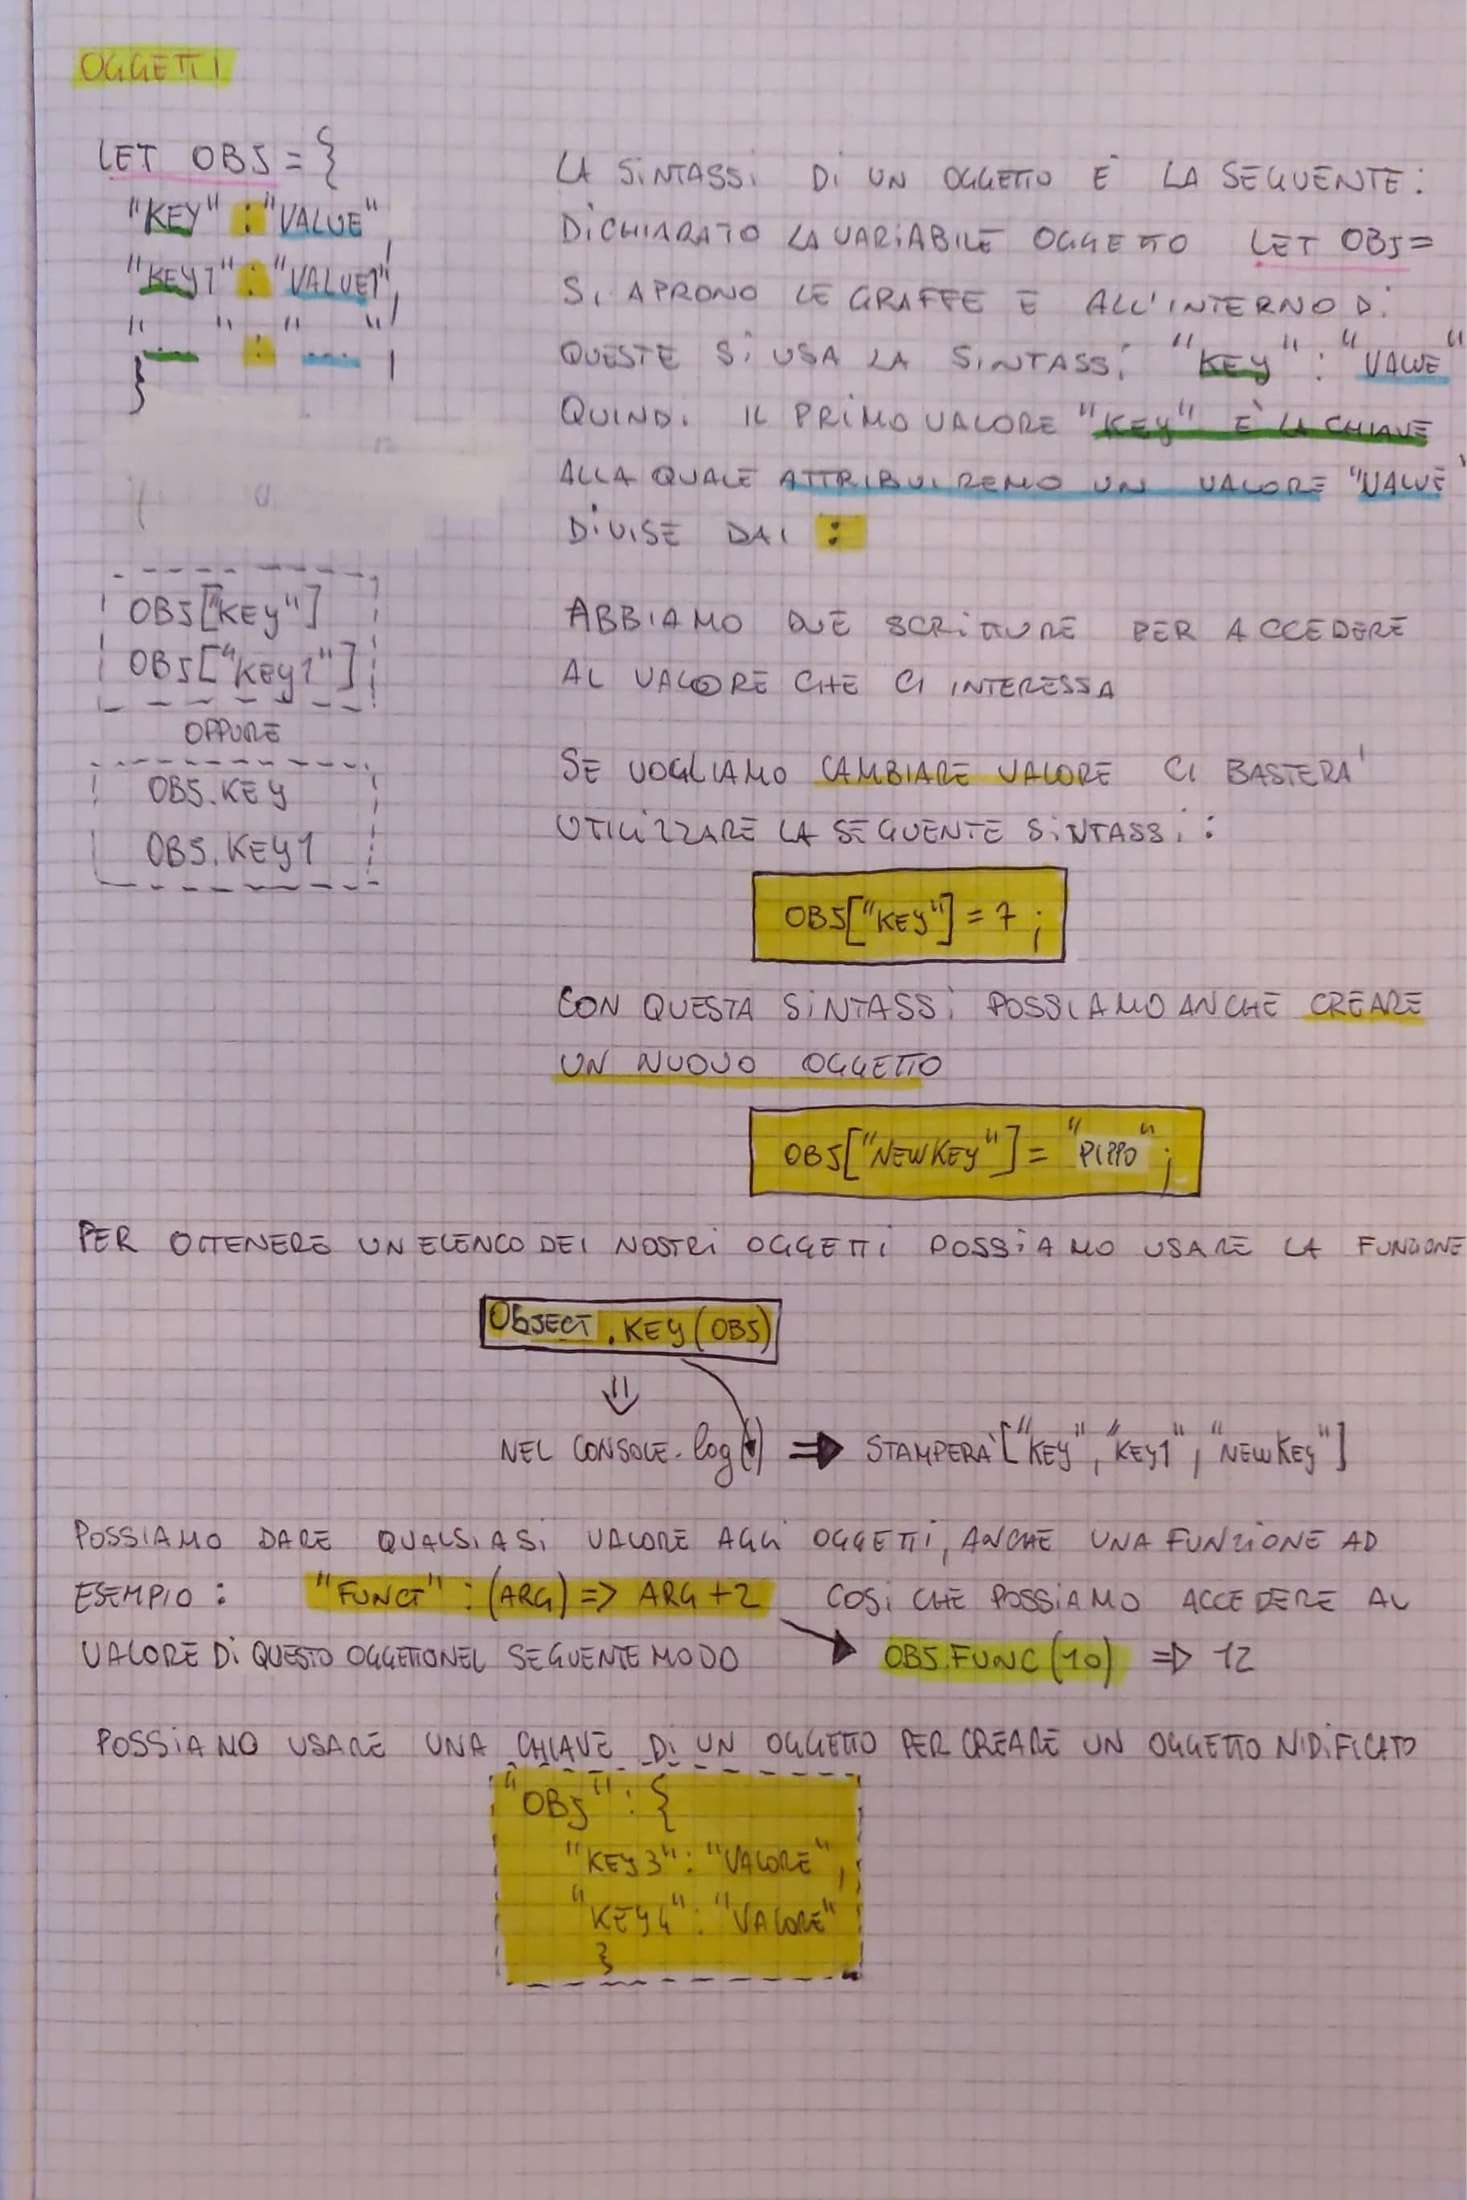 OGGETTI
LET OBJ = {
"KEY" : "VALUE",
"KEY1" : "VALUE1",
"..." : "...",
}
LA SINTASSI DI UN OGGETTO È LA SEGUENTE:
DICHIARATO LA VARIABILE OGGETTO LET OBJ=
SI APRONO LE GRAFFE E ALL'INTERNO DI
QUESTE SI USA LA SINTASSI "KEY" : "VALUE"
QUINDI IL PRIMO VALORE "KEY" È LA CHIAVE
ALLA QUALE ATTRIBUIREMO UN VALORE "VALUE"
DIVISE DAI :
OBJ["KEY"]
OBJ["KEY1"]
OPPURE
OBJ.KEY
OBJ.KEY1
ABBIAMO DUE SCRITTURE PER ACCEDERE
AL VALORE CHE CI INTERESSA
SE VOGLIAMO CAMBIARE VALORE CI BASTERA'
UTILIZZARE LA SEGUENTE SINTASSI:
OBJ["KEY"] = 7;
CON QUESTA SINTASSI POSSIAMO ANCHE CREARE
UN NUOVO OGGETTO
OBJ["NEWKEY"] = "PIPPO";
PER OTTENERE UN ELENCO DEI NOSTRI OGGETTI POSSIAMO USARE LA FUNZIONE
ObJECT.KEY(OBJ)
⇓
NEL CONSOLE.log() ⇒ STAMPERA' ["KEY", "KEY1", "NEWKEY"]
POSSIAMO DARE QUALSIASI VALORE AGLI OGGETTI, ANCHE UNA FUNZIONE AD
ESEMPIO: "FUNCT" : (ARG) => ARG + 2 COSI CHE POSSIAMO ACCEDERE AL
VALORE DI QUESTO OGGETTO NEL SEGUENTE MODO → OBJ.FUNC(10) ⇒ 12
POSSIAMO USARE UNA CHIAVE DI UN OGGETTO PER CREARE UN OGGETTO NIDIFICATO
"OBJ" : {
"KEY3" : "VALORE",
"KEY4" : "VALORE"
}